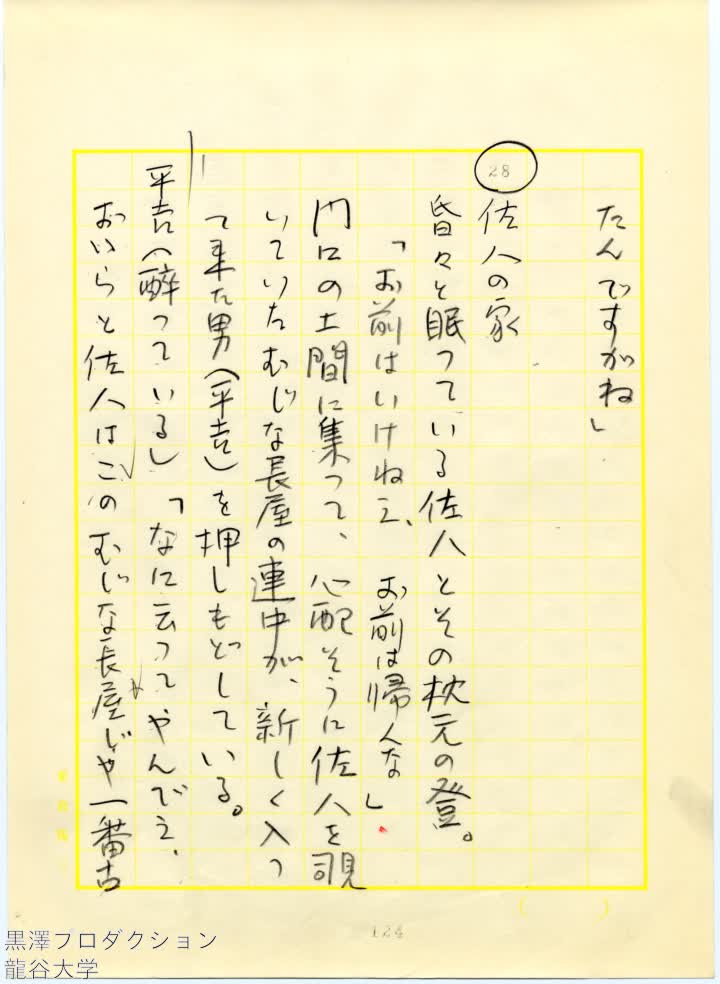 たんですがね」
28
佐八の家
昏々と眠っている佐八とその枕元の登。
「お前はいけねえ、お前は帰んな」
門口の土間に集って、心配そうに佐八を覗
いていたむじな長屋の連中が、新しく入っ
て来た男（平吉）を押しもどしている。
平吉（酔っている）「なに云ってやんでえ、
おいらと佐八はこのむじな長屋じゃ一番古
124
黒澤プロダクション
龍谷大学